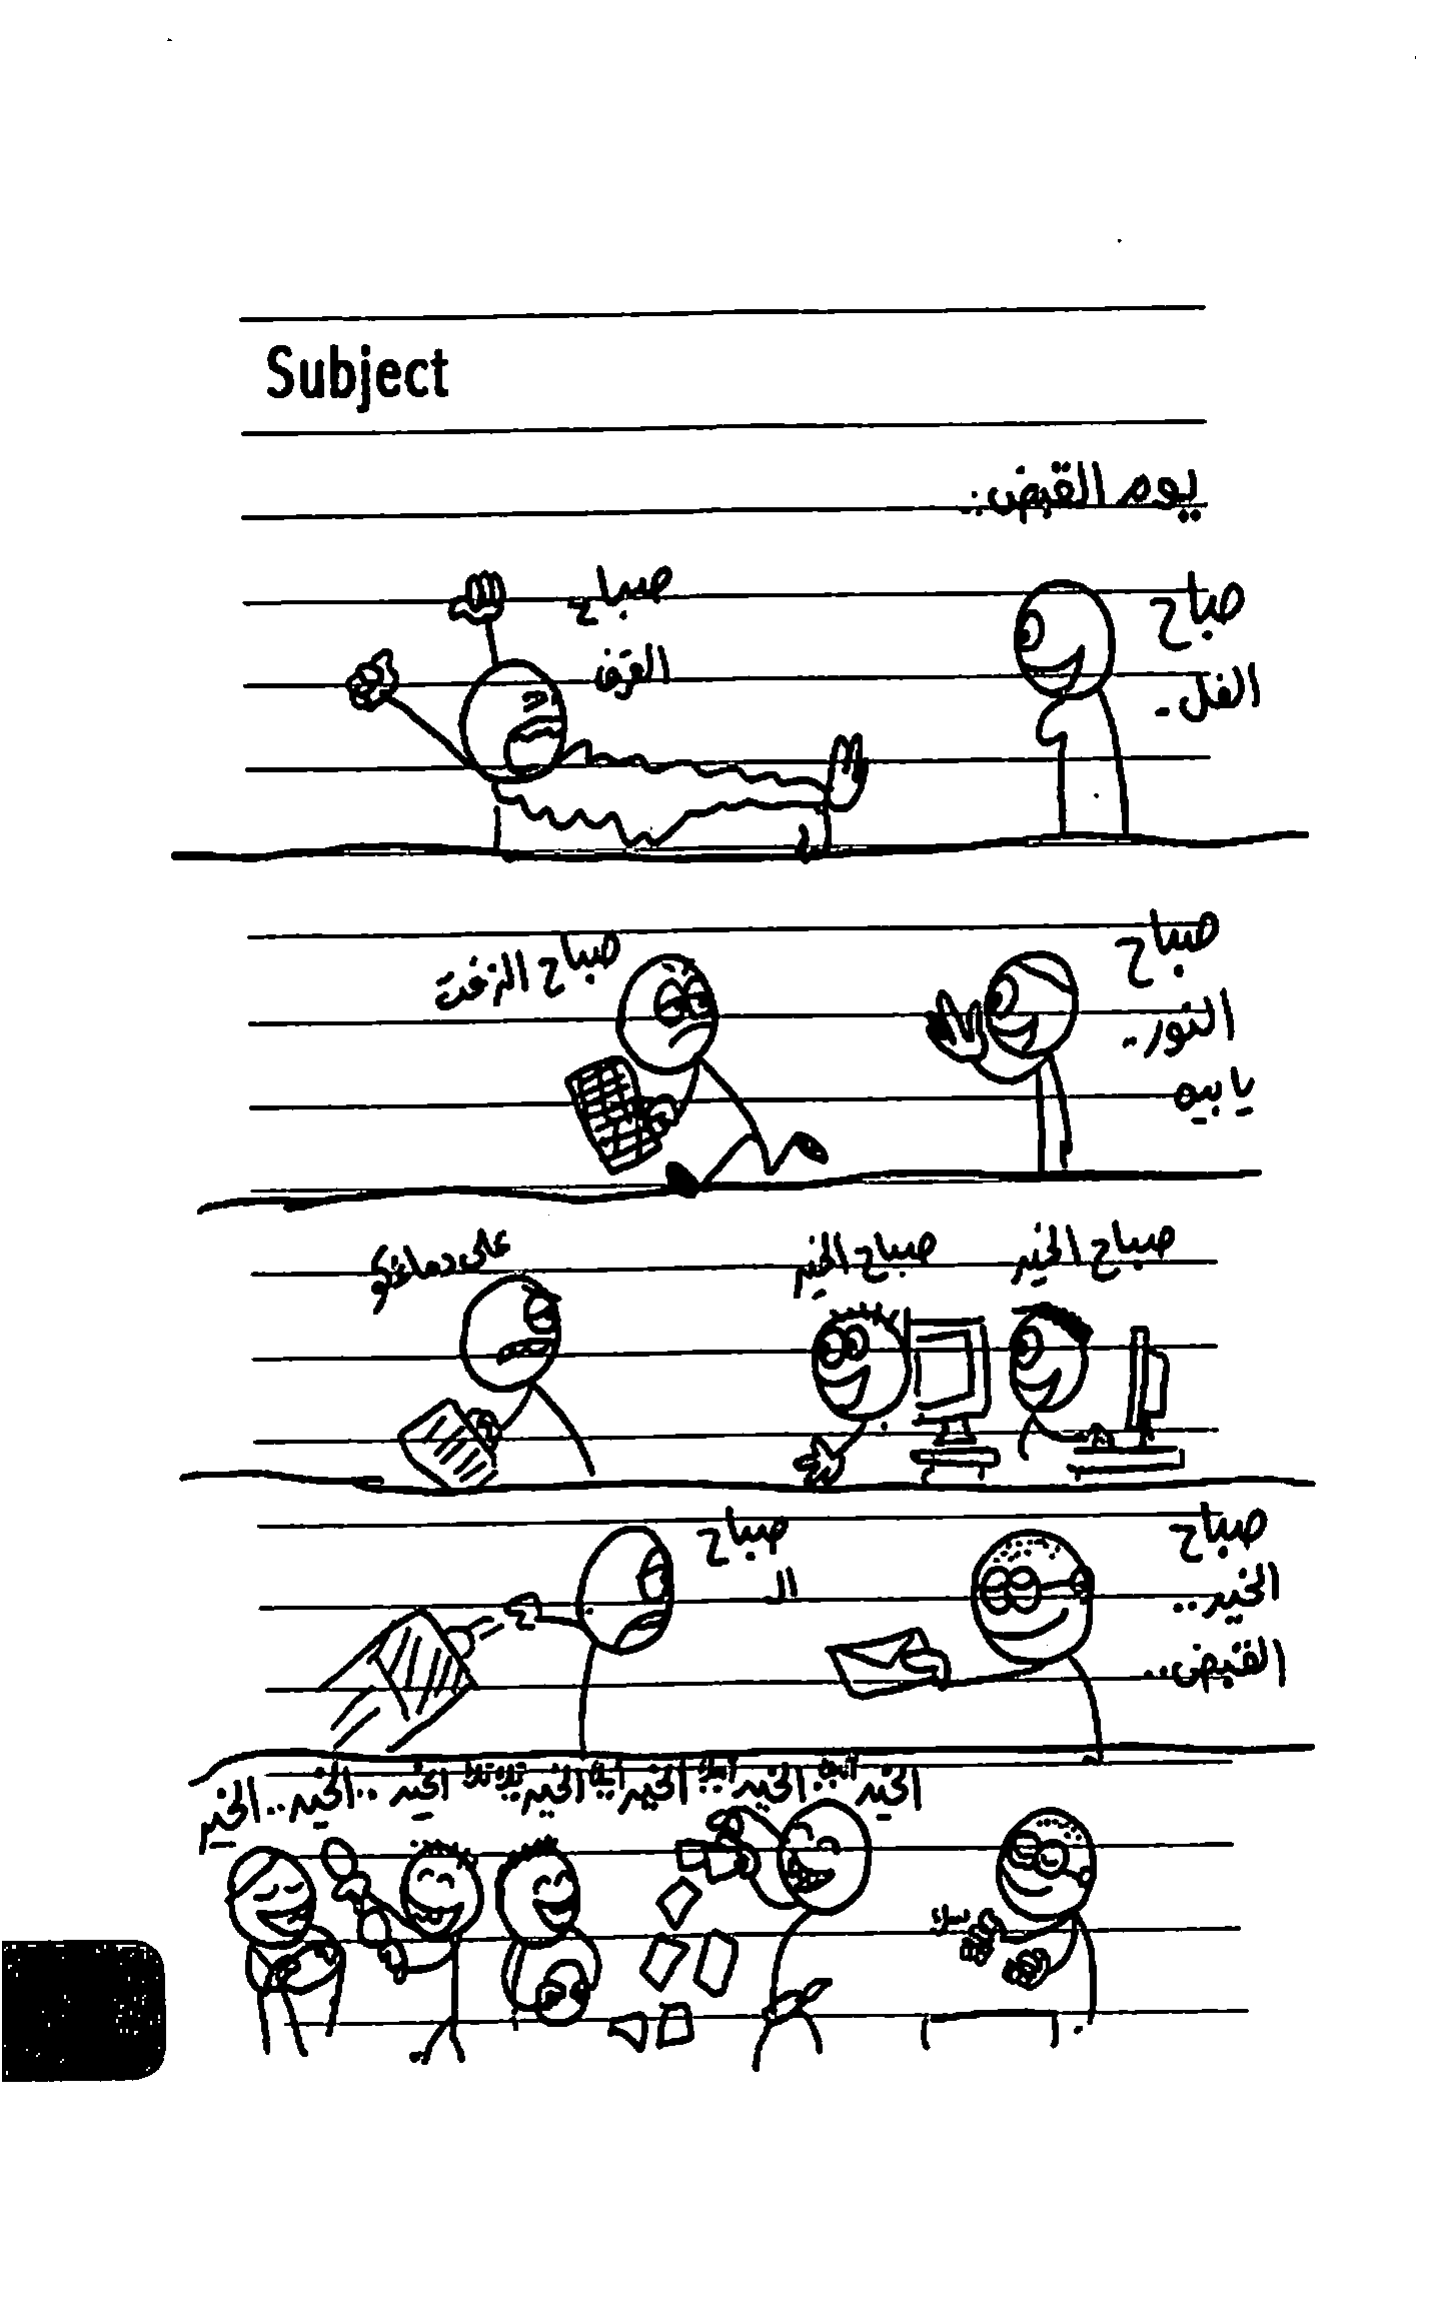 Subject
يوم القبض..
صباح
الفل..
صباح
القرف
صباح
النور..
يا بيه
صباح الزفت
صباح الخير
صباح الخير
على دماغكو
صباح
الخير..
القبض..
صباح
الـ
الخير
الخير
الخير
الخير
الخير.. الخير.. الخير